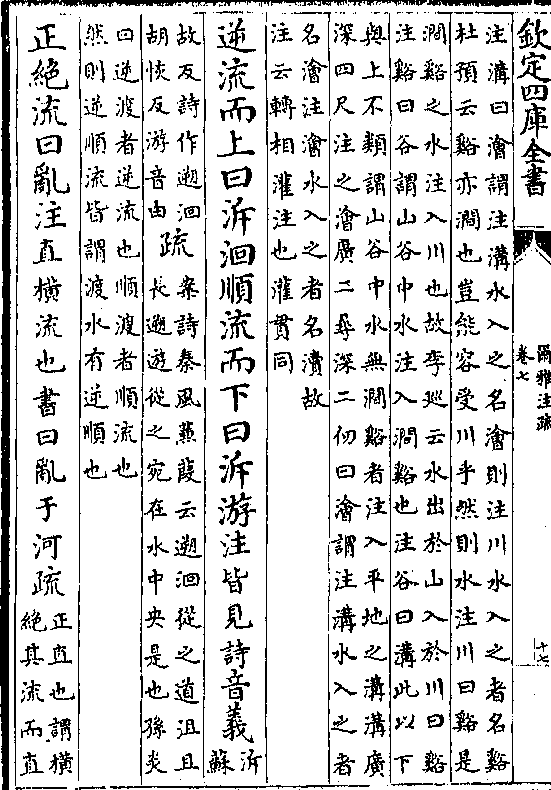 欽定四庫全書
爾雅注疏
卷七
十七
注溝曰澮謂注溝水入之名澮則注川水入之者名谿
杜預云谿亦澗也豈能容受川乎然則水注川曰谿是
澗谿之水注入川也故李巡云水出於山入於川曰谿
注谿曰谷謂山谷中水注入澗谿也注谷曰溝此以下
與上不類謂山谷中水無澗谿者注入平地之溝溝廣
深四尺注之澮廣二尋深二仞曰澮謂注溝水入之者
名澮注澮水入之者名瀆故
注云轉相灌注也灌貫同
逆流而上曰泝洄順流而下曰泝游注皆見詩音義
泝
蘇
故反詩作遡洄
胡恢反游音由
疏
案詩秦風蒹葭云遡洄從之道沮且
長遡遊從之宛在水中央是也孫炎
曰逆渡者逆流也順渡者順流也
然則逆順流皆謂渡水有逆順也
正絶流曰亂注直橫流也書曰亂于河疏
正直也謂橫
絶其流而直